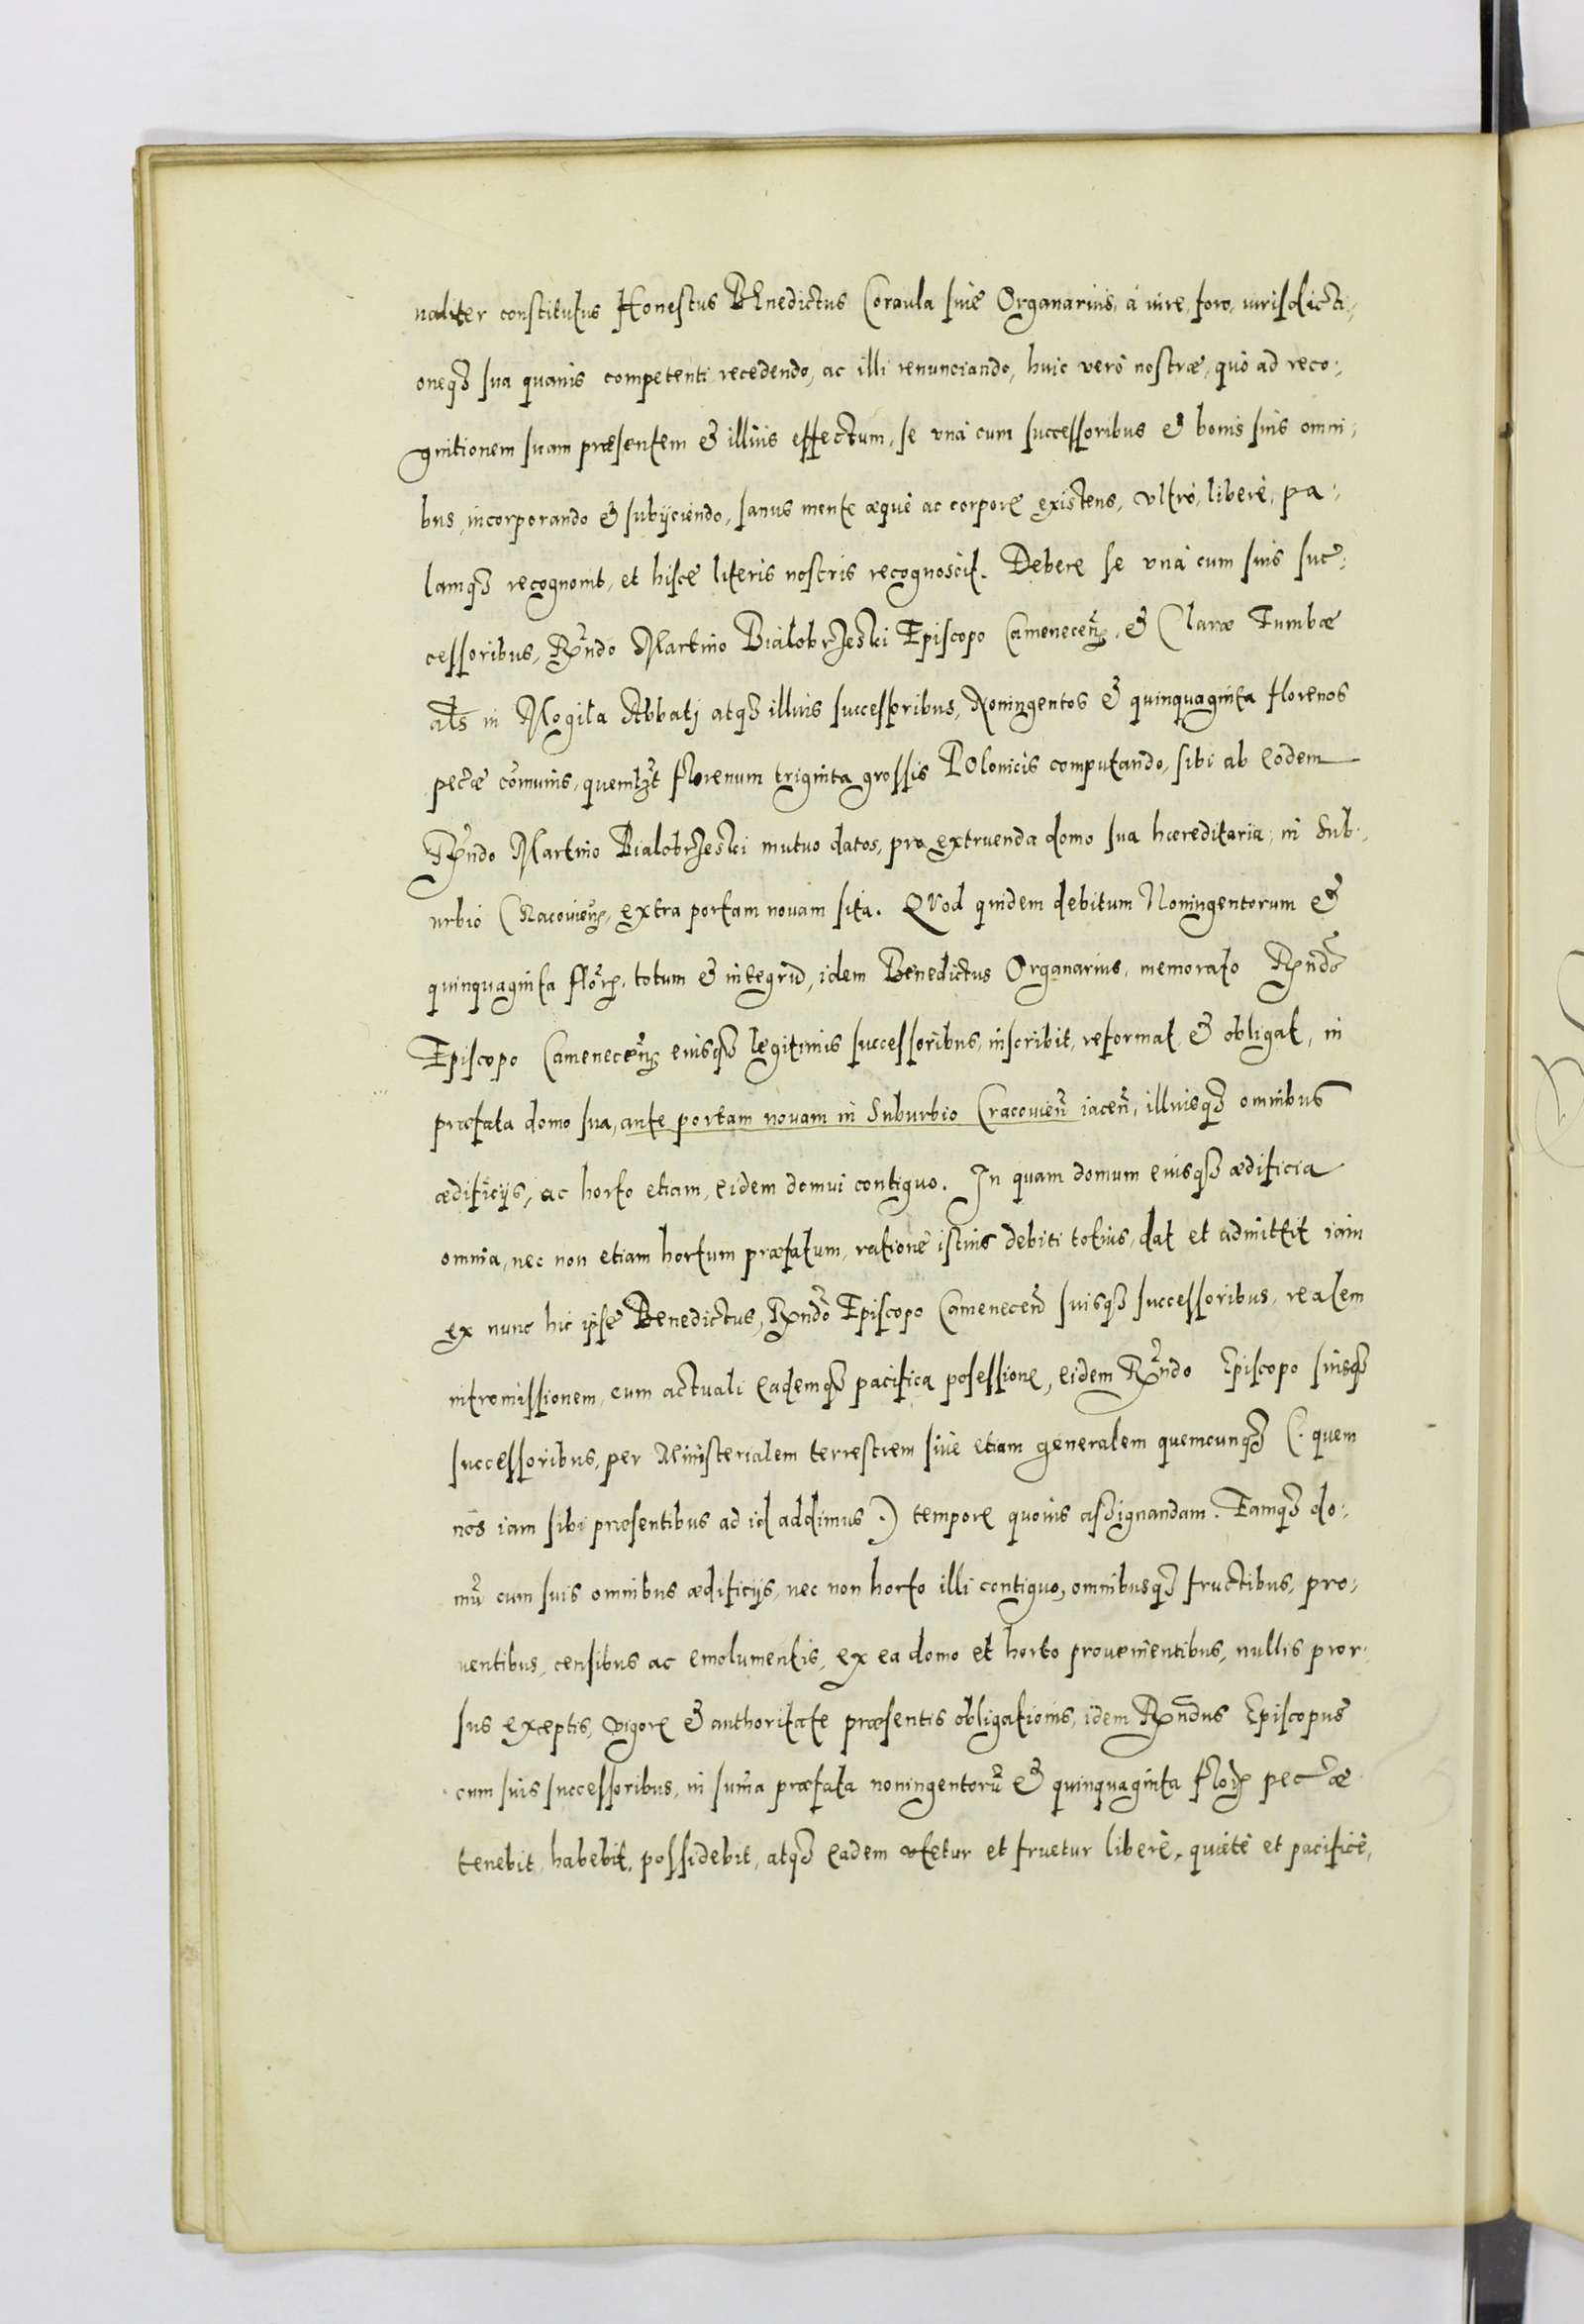 naliter constitutus Honestus BEnedictus Coraula siue Organarius, à iure, foro, iurisdicti:
oneqꝫ sua quauis competenti recedendo, ac illi renunciando, huic verò nostræ, quò ad reco:
gnitionem suam præsentem & illius effectum, se vnà cum successoribus & bonis suis omni:
bus, incorporando & subijciendo, sanus mente æquè ac corpore existens, vltrò, liberè, pa:
lamqꝫ recognouit, et hisce literis nostris recognoscit. Debere se vnà cum suis suc:
cessoribus, Rñdo Martino Bialobrzeski Episcopo Cameneceñ, & Claræ Tumbæ
als in Mogila Abbatj atqꝫ illius successoribus, Noningentos & quinquaginta florenos
pecæ cõmunis, quemlꝫt florenum triginta grossis POlonicis computando, sibi ab eodem
Rñdo Martino Bialobrzeski mutuo datos, pro extruenda domo sua hæreditaria, in Sub:
urbio Cracouieñ, extra portam nouam sita. QVod quidem debitum Noningentorum &
quinquaginta florꝝ. totum & integrũ, idem Benedictus Organarius, memorato Rñdo
Episcopo Cameneceñ eiusqꝫ legitimis successoribus, inscribit, reformat & obligat, in
præfata domo sua, ante portam nouam in Suburbio Cracouieñ iaceñ, illiusqꝫ omnibus
ædificijs, ac horto etiam, eidem domui contiguo. In quam domum eiusqꝫ ædificia
omnia, nec non etiam hortum præfatum, ratione istius debiti totius, dat et admittit iam
ex nunc hic ipse Benedictus, Rñdo Episcopo Cameneceñ suisqꝫ successoribus, realem
intromissionem, cum actuali eademqꝫ pacifica posessione, eidem Rñdo Episcopo suisqꝫ
successoribus, per Ministerialem terrestrem siue etiam generalem quemcunqꝫ (. quem
nos iam sibi præsentibus ad id addimus .) tempore quouis assignandam. Eamqꝫ do:
mũ cum suis omnibus ædificijs, nec non horto illi contiguo, omnibusqꝫ fructibus, pro:
uentibus, censibus ac emolumentis, ex ea domo et horto prouenientibus, nullis pror:
sus exceptis, vigore & authoritate præsentis obligationis, idem Rñdus Episcopus
cum suis successoribus, in sum̃a præfata noningentorũ & quinquaginta florꝝ pecæ
tenebit, habebit, possidebit, atqꝫ eadem vtetur et fruetur liberè, quietè et pacificè,